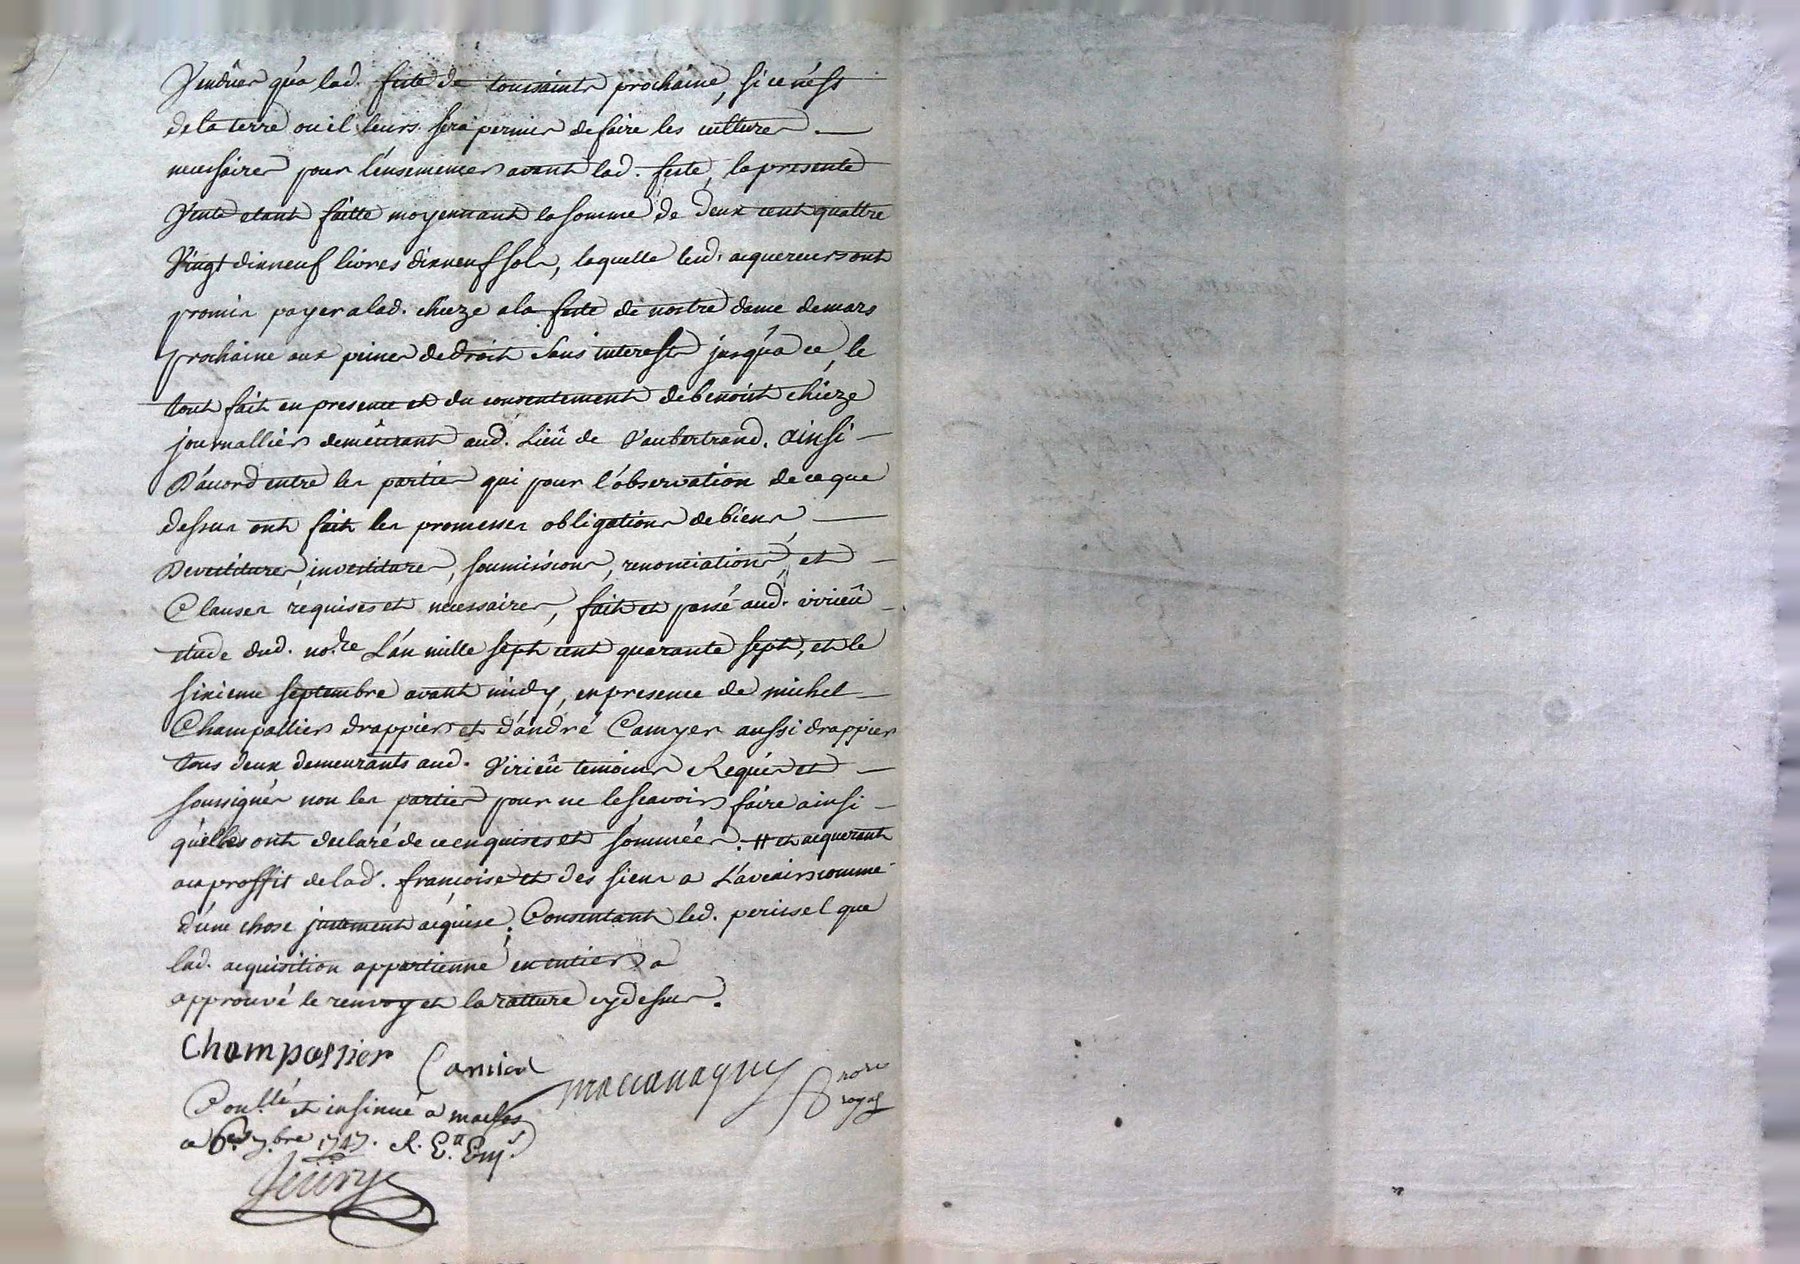 Vendües qu'a lad. feste de toussaints prochaine, si ce n'est
de la terre ou il leurs sera permis de faire les cultures
necessaires pour l'ensemencer avant lad. feste, la presente
Vente etant faitte moyennant la somme de deux cent quattre
Vingt dixneuf livres dixneuf sols, laquelle lesd. acquereurs ont
promis payer a lad. chieze a la feste de nostre dame de mars
prochaine aux peines de droit sans interests jusqu'a ce, le
tout fait en presence et du consentement de benoint chieze
journallier demeurant aud. Lieû de Vaubertrand. ainsi
D'acord entre les parties qui pour l'observation de ce que
dessus ont fait les promesses obligations de biens,
Devestitures, investitures, soumissions, renonciations, et
Clauses requises et necessaires, fait et passé aud. virieû
etude dud. no.re L'an mille sept cent quarante sept, et le
sixieme septembre avant midy, en presence de michel
Champallier drappier et d'andré Camyer aussi drappier
tous deux demeurants aud. Virieû temoins Requis et
soussignés non les parties pour ne le scavoir faire ainsi
qu'elles ont declaré de ce enquises et sommées. # et acquerant
au proffit de lad. francoise et des siens a L'avenir comme
d'une chose justement acquise. Consentant led. perissel que
lad. acquisition appartienne en entier a
approuvé le renvoy et la ratture cy dessus.
Champallier Camier
maccanaguy no.re
royal
Con.llé et insinué a
ce 6.e 7.bre 1747. R.